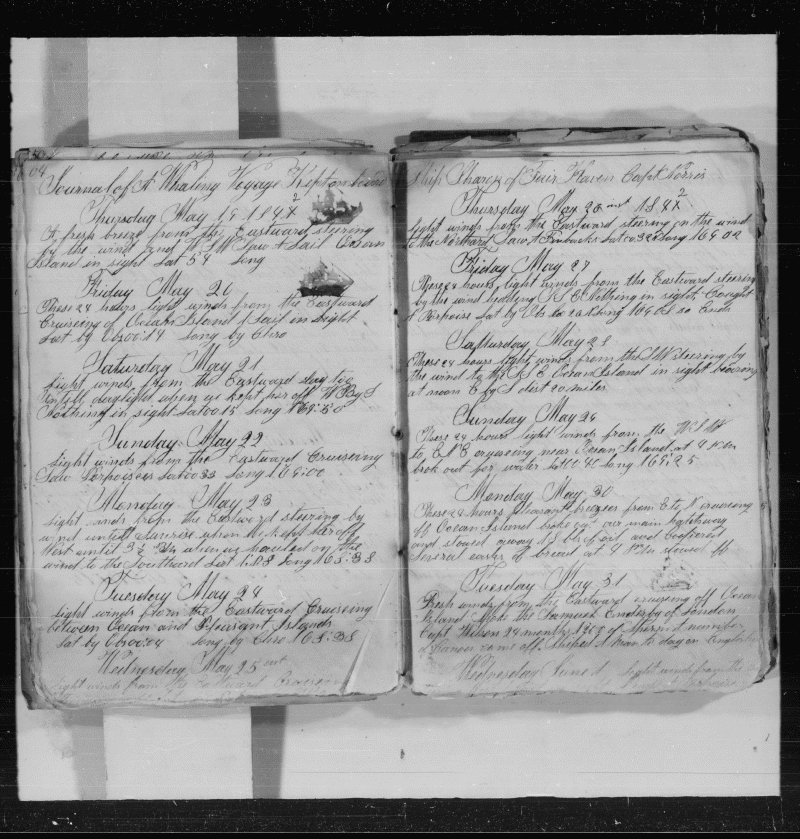 Journal of A Whaling Voyage Kept on board
Thursday May 19 1842
A fresh breeze from the Eastward steering
by the wind and W S W Saw A Sail Ocean
Island in sight Lat 54 Long
Friday May 20
These 24 hours light winds from the Eastward
Cruising of Ocean Island 1 Sail in sight
Lat by Ob 00:14 Long by Chro
Saturday May 21
Light winds from the Eastward lay too
untill daylight when we kept her off W By S
Nothing in sight Lat 00 15 Long 168:50
Sunday May 22
Light winds from the Eastward Cruiseing
Saw Porpoises Lat 00 33 Long 168:00
Monday May 23
Light winds from the Eastward steering by
wind untill Sunrise when we kept her off
West untill 3½ P.M. when we hauled on the
wind to the Southard Lat Long 168:38
Tuesday May 24
Light winds from the Eastward Cruiseing
between Ocean and Pleasant Islands
Lat by Ob 00:04 Long by Chro 168:38
Wednesday May 25
Light winds from the Eastward
Ship Sharon of Fair Haven Capt Norris
Thursday May 26 1842
Light winds from the Eastward steering on the wind
to the Northard Saw A Finbacks Lat 00 32 Long 169 02
Friday May 27
These 24 hours light winds from the Eastward steering
by the wind heading S E Nothing in sight Caught
A Porpoise Lat by Ob Long so Ends
Saturday May 28
These 24 hours light winds from the S W Steering by
the wind to the S E Ocean Island in sight bearing
at noon E by S dist 20 miles
Sunday May 29
These 24 hours light winds from the W S W
to E N E cruiseing near Ocean Island at 4 P.M
broke out for water Lat 0 40 Long 168:25
Monday May 30
These 24 hours pleasant breezes from E to N cruiseing
off Ocean Island broke out our main hatchway
and stowed away of oil and Coopered
Several casks of bread at 8 P.M. stowed
Tuesday May 31
Fresh winds from the Eastward cruiseing off Ocean
Island Spoke the Samuel Enderby of London
Capt 24 months of Sperm A number
of canoes came off Shiped A man to day an English
Wednesday June 1 Light winds from the